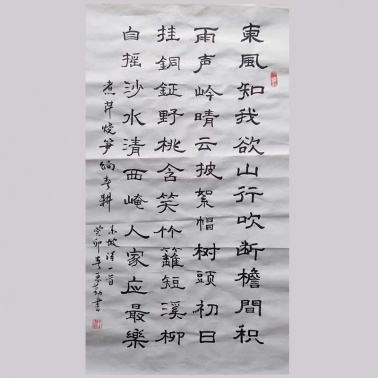 東風知我欲山行吹断檐間积
雨声岭晴云披絮帽树头初日
挂銅鉦野桃含笑竹籬短溪柳
自摇沙水清西崦人家应最樂
煮芹烧笋饷春耕
东坡诗一首
癸卯 书